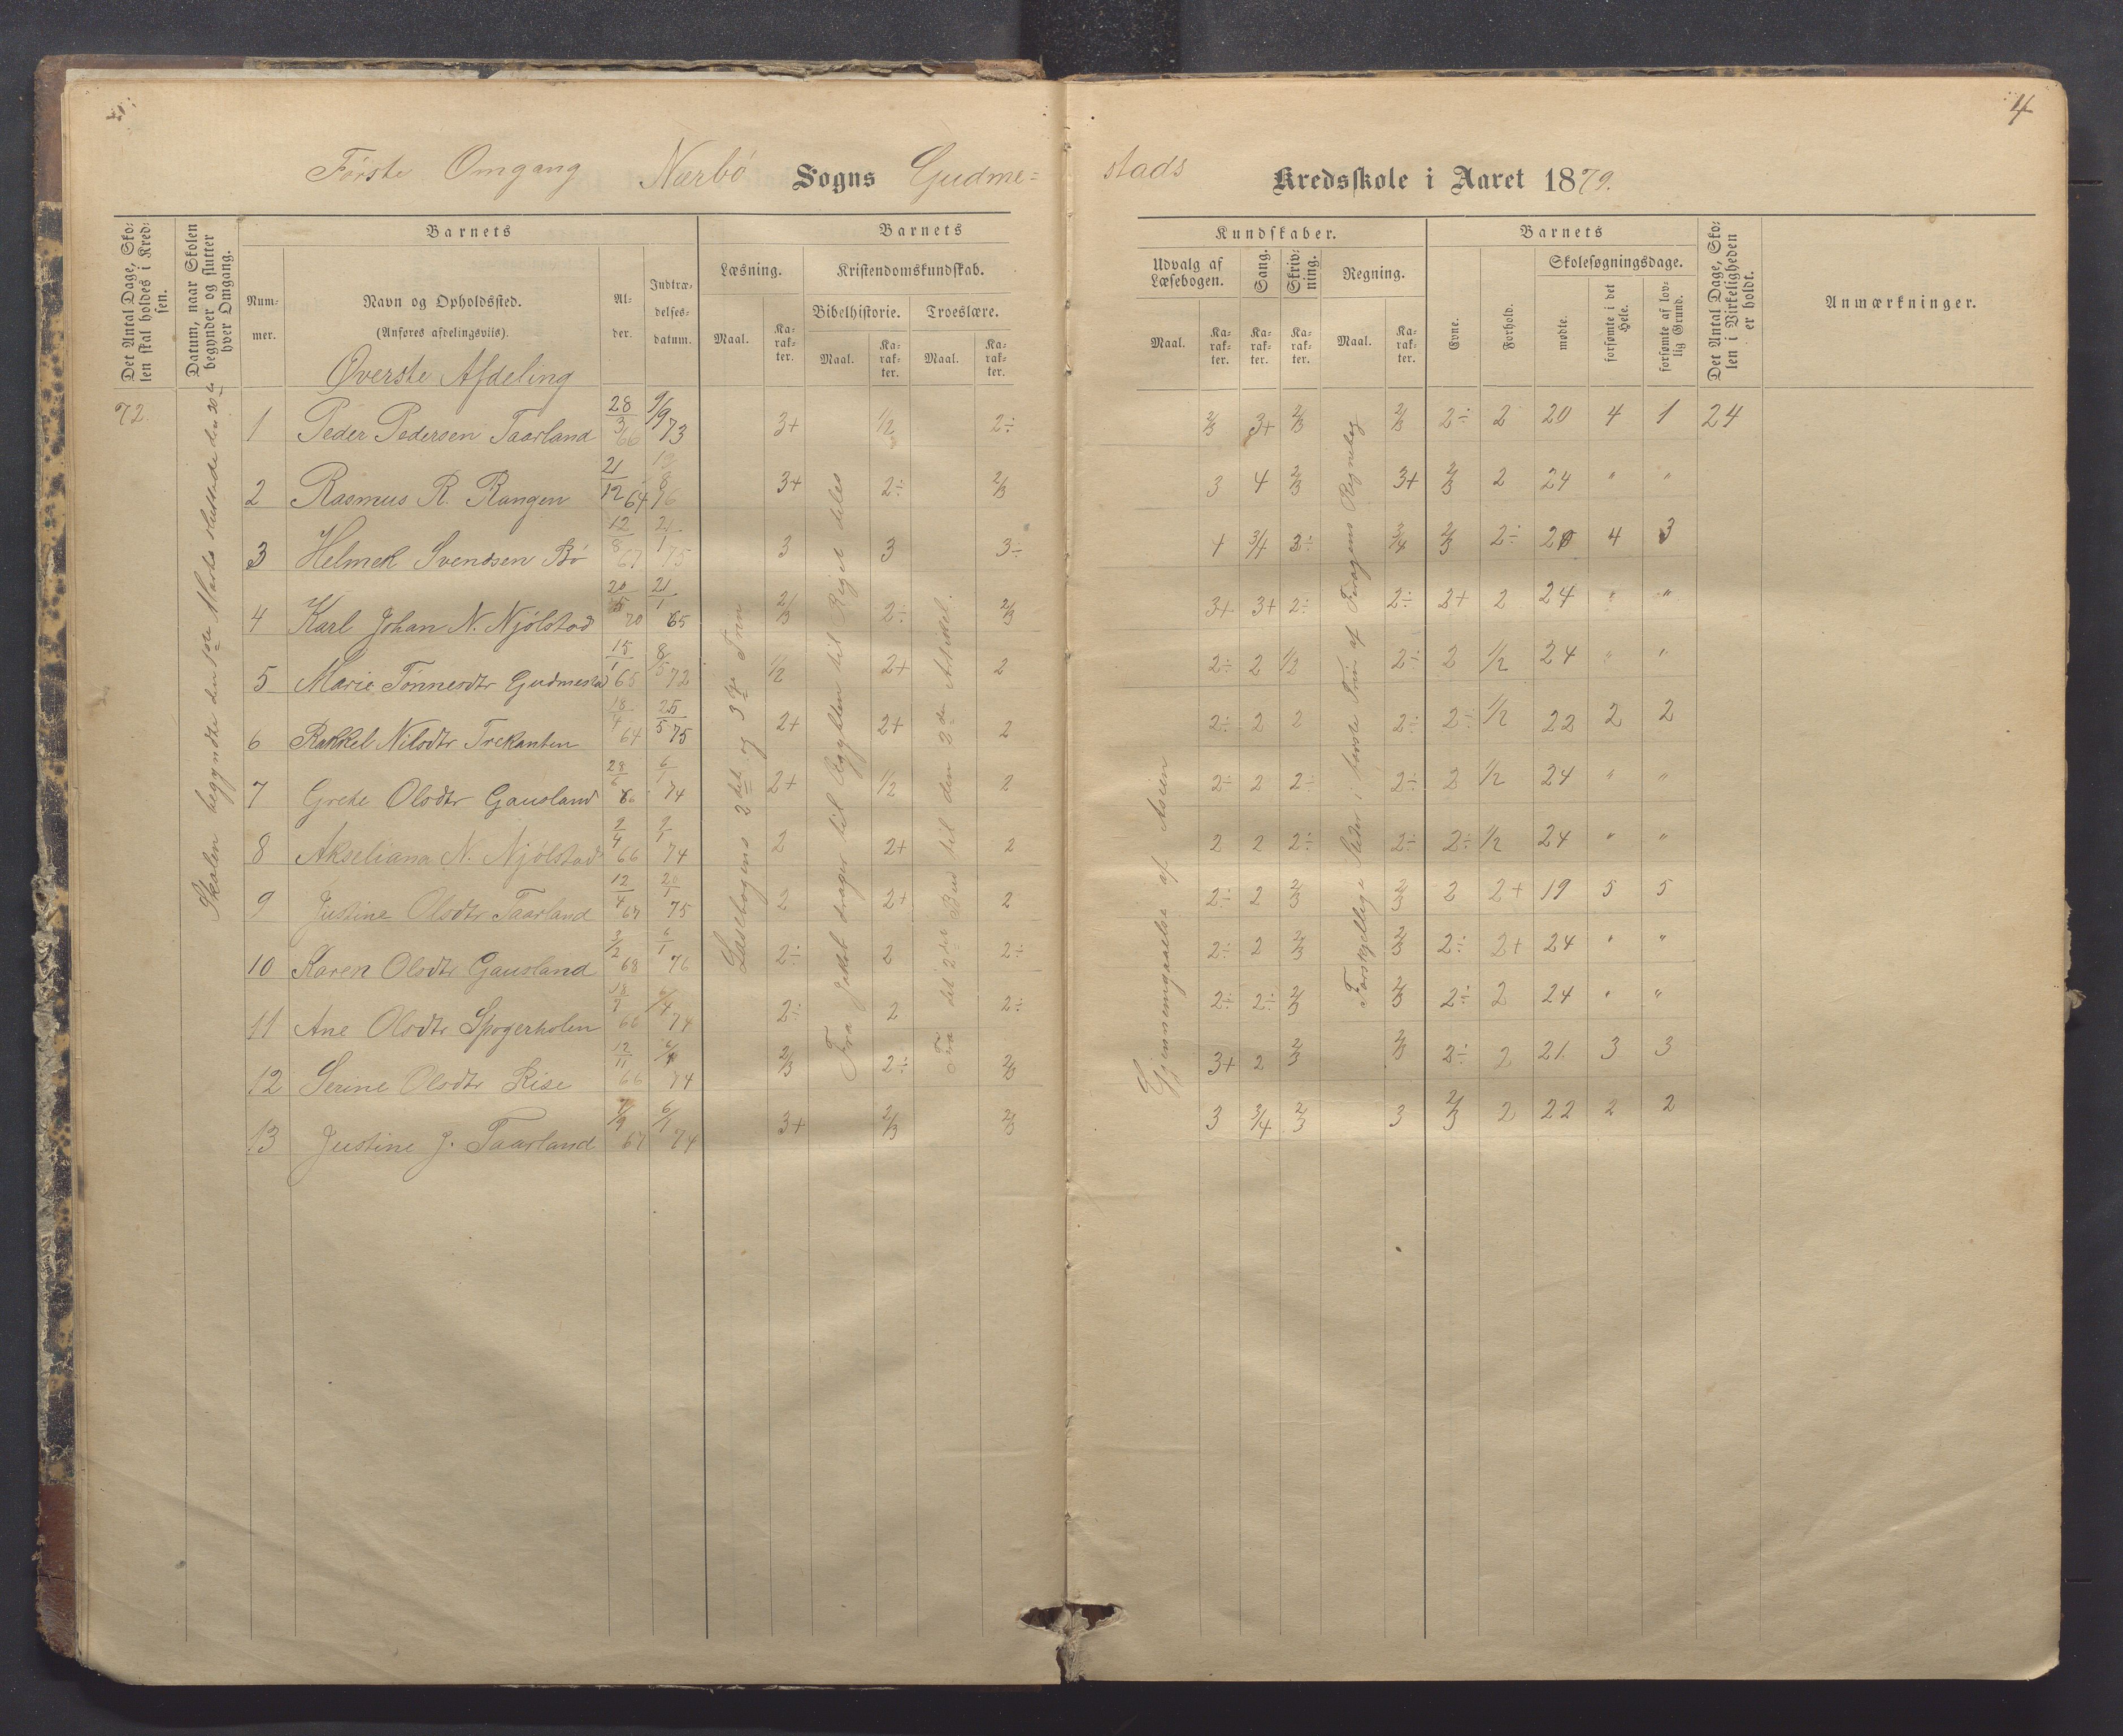 4
Første Omgang Nærbø Sogns Gudme=
stads Kredsskole i Aaret 1879.
Det Antal Dage, Sko-
len skal holdes i Kred-
sen.
Datum, naar Skolen
begynder og slutter
hver Omgang.
Barnets
Num-
mer.
Navn og Opholdssted.
(Anføres afdelingsviis).
Al-
der.
Indtræ-
delses-
datum.
Barnets
Læsning.
Maal.
Ka-
rak-
ter.
Kristendomskundskab.
Bibelhistorie. Troeslære.
Maal.
Ka-
rak-
ter.
Maal.
Ka-
rak-
ter.
Kundskaber.
Udvalg af
Læsebogen.
Sang.
Skriv-
ning.
Regning.
Maal.
Ka-
rak-
ter.
Ka-
rak-
ter.
Ka-
rak-
ter.
Maal.
Ka-
rak-
ter.
Barnets
Evne.
Forhold.
Skolesøgningsdage.
mødte.
forsømte i det
Hele.
forsømte af lov-
lig Grund.
Det Antal Dage, Sko-
len i Virkeligheden
er holdt.
Anmærkninger.
Øverste Afdeling
72.
Skolen begyndte den 1ste Marts sluttede den 20de
Læsebogens 2det og 3die Trin
Fra Jakob drager til Ægypten til Riget deles
Fra det 2det Bud til den 2den Artikel.
Gjennemgaaelse af Asien
Forskjellige Stder i første Trin af Fragens Regnebog
1 Peder Pedersen Taarland 28/3 66 9/9 73 3+ 1/2 2÷ 2/3 3+ 2/3 2/3 2÷ 2 20 4 1 24
2 Rasmus R. Rangen 21/12 64 76 3+ 2÷ 2/3 3 4 2/3 3+ 2/3 2 24 " "
3 Helmek Svendsen Bö 12/8 67 21/1 75 3 3 3÷ 4 3/4 3÷ 3/4 2/3 2÷ 20 4 3
4 Karl Johan N. Njölstad 20 21/1 65 2/3 2÷ 2/3 3+ 3+ 2÷ 2÷ 2+ 2 24 " "
5 Marie Tönnesdtr Gudmestad 15/1 65 8/5 72 1/2 2+ 2 2÷ 2 1/2 2÷ 2 1/2 24 " "
6 Rakkel Nilsdtr Trekanten 18/4 64 25/5 75 2+ 2+ 2 2÷ 2 2 2÷ 2÷ 1/2 22 2 2
7 Grete Olsdtr Gausland 28/6 66 6/1 74 2+ 1/2 2 2÷ 2 2÷ 2÷ 2 1/2 24 " "
8 Akseliana N. Njölstad 2/4 66 2/1 74 2 2+ 2 2 2 2÷ 2÷ 2÷ 1/2 24 " "
9 Justine Olsdtr Taarland 12/4 67 20/1 75 2 2+ 2 2÷ 2 2/3 2/3 2 2+ 19 5 5
10 Karen Olsdtr Gausland 3/2 68 6/1 76 2÷ 2 2÷ 2÷ 2 2/3 2/3 2÷ 2+ 24 " "
11 Ane Olsdtr Spogerholen 18/7 66 6/4 74 2÷ 2 2÷ 2÷ 2÷ 2/3 2/3 2÷ 2 24 " "
12 Serine Olsdtr Rise 12/11 66 74 2/3 2÷ 2/3 3+ 2 2/3 2/3 2÷ 2 21. 3 3
13 Justine J. Taarland 7/9 67 6/1 74 3+ 2/3 2/3 3 3/4 2/3 3 2/3 2 22 2 2